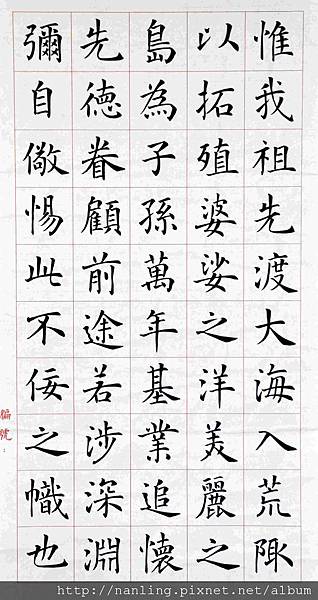 惟我祖先渡大海入荒陬
以拓殖婆娑之洋美麗之
島為子孫萬年基業追懷
先德眷顧前途若涉深淵
彌自儆惕此不佞之幟也
編號：
http://nanling.pixnet.net/album